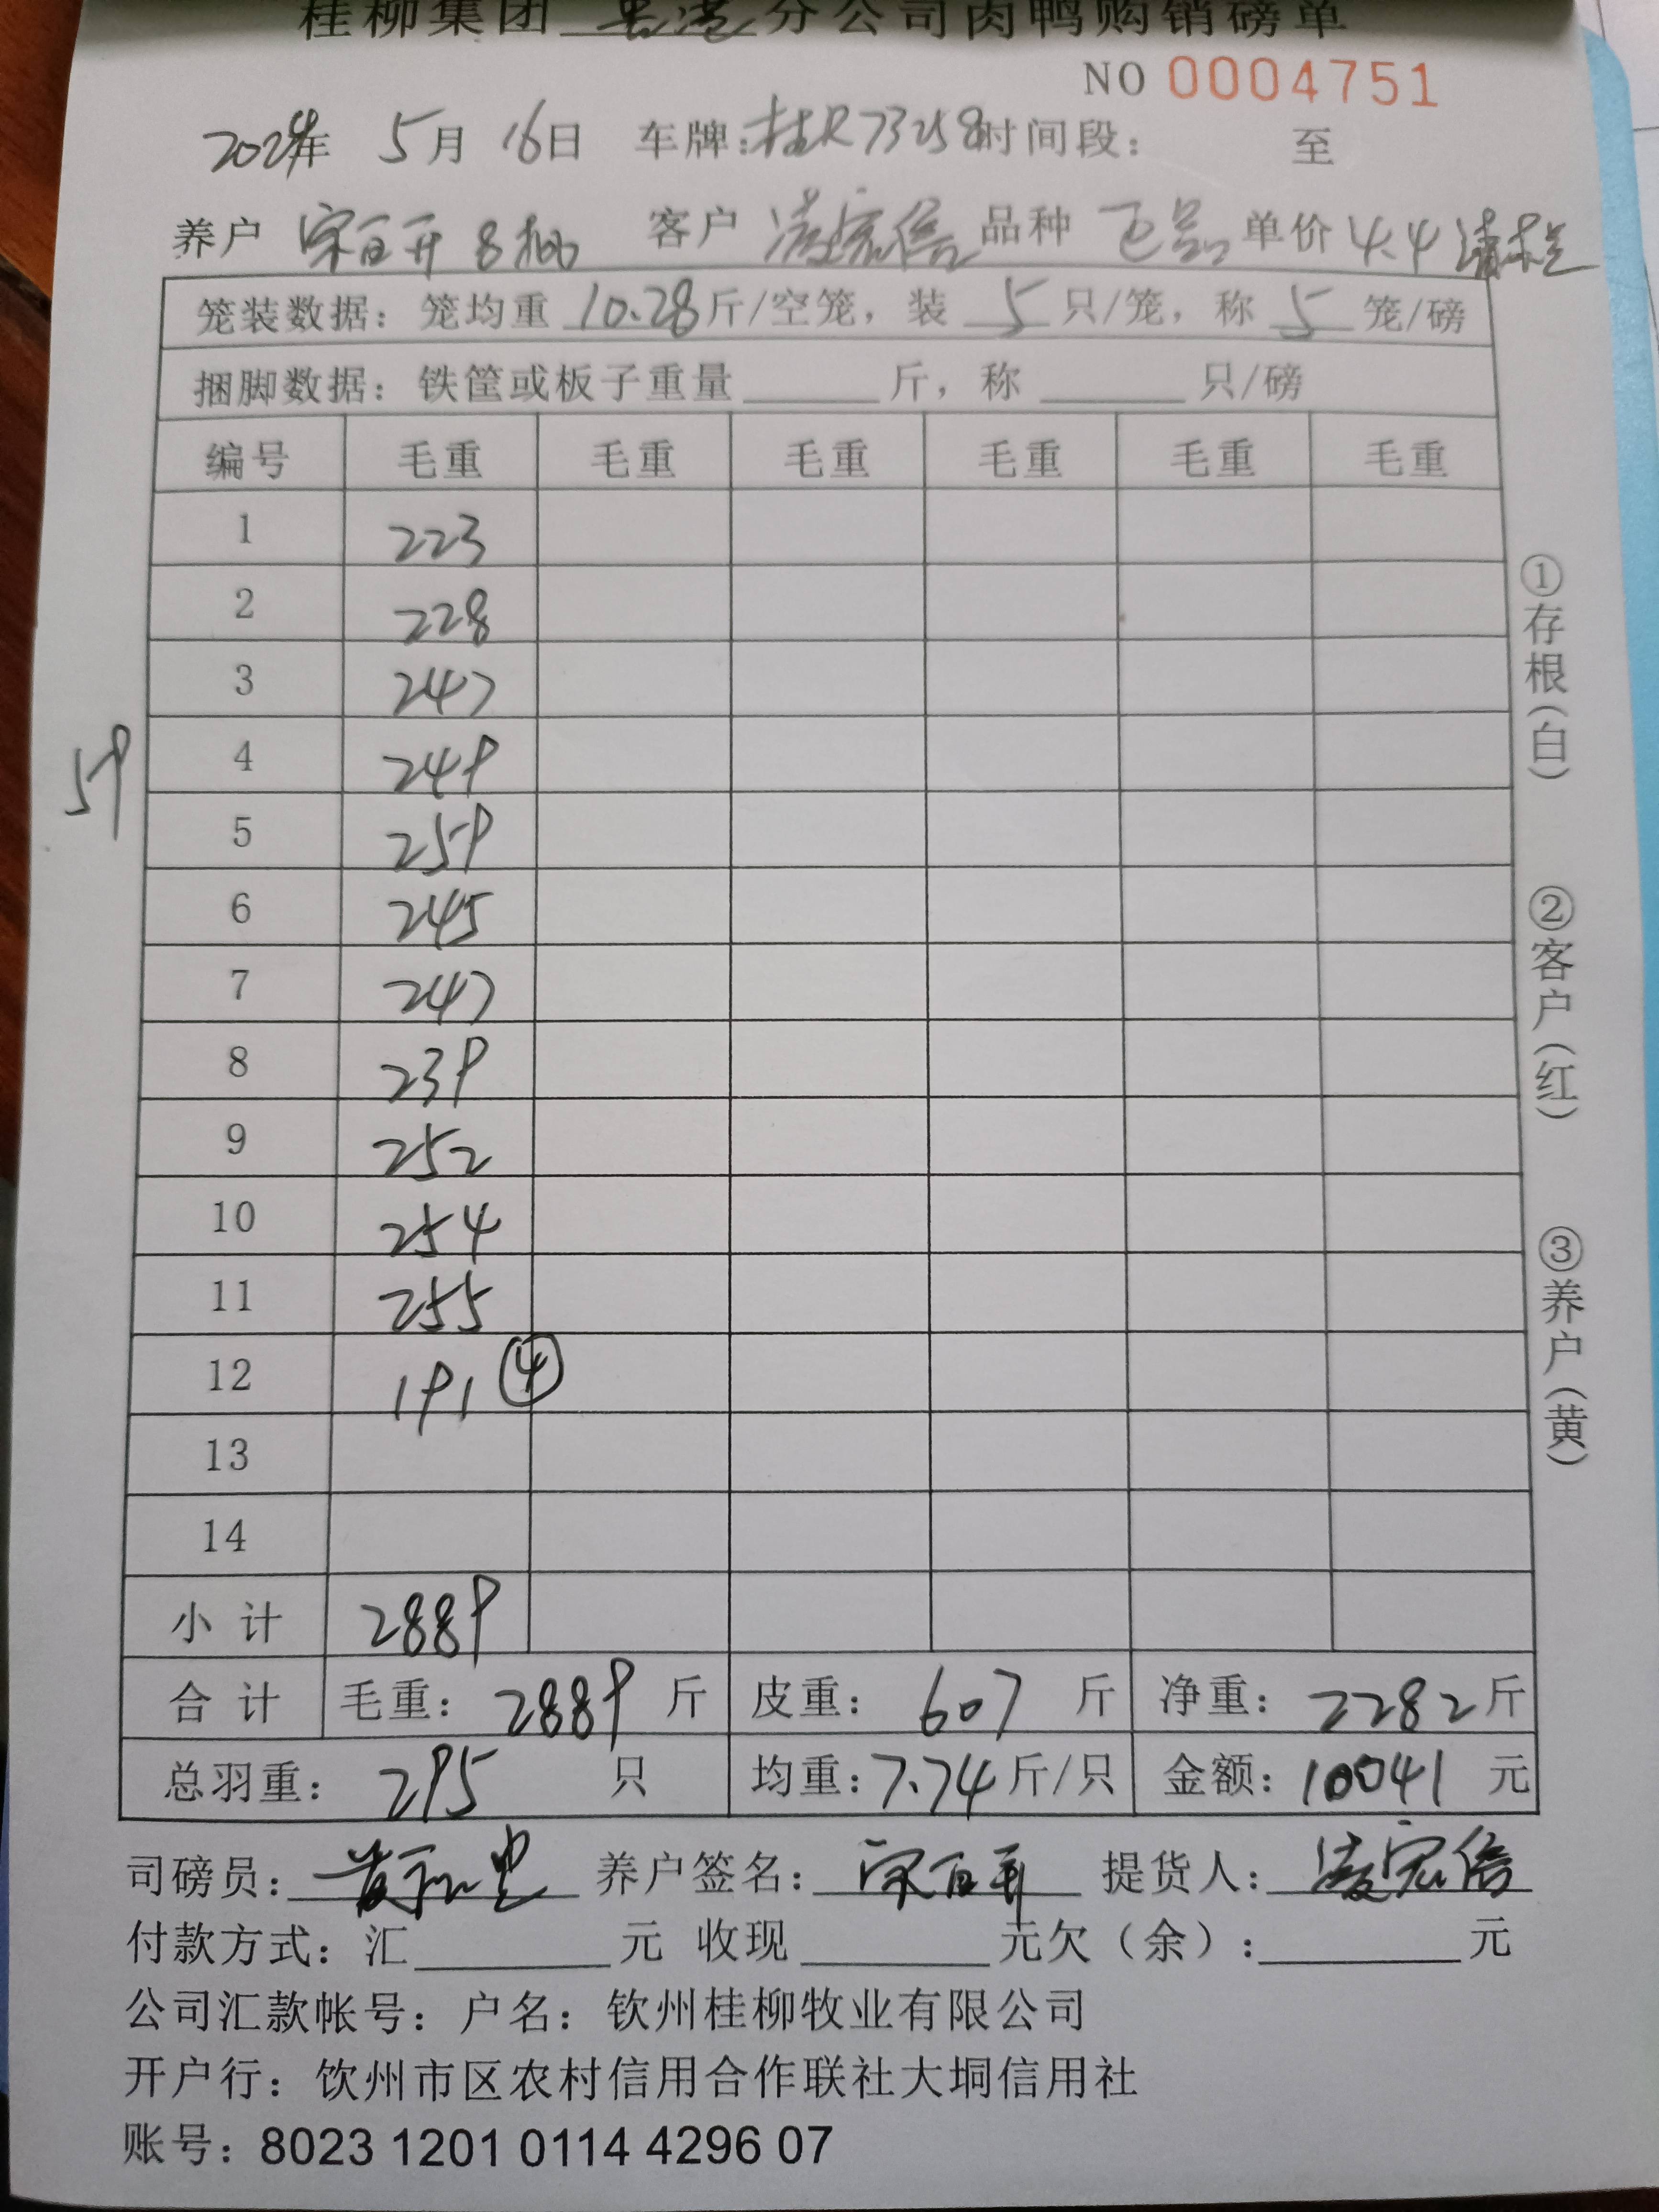 桂柳集团 贵港 分公司肉鸭购销磅单
NO 0004751
2024年 5月 16日 车牌:桂R73258 时间段: 至
养户 宋百开 8批 客户 凌宏信 品种 正品 单价 4.4
笼装数据: 笼均重 10.28 斤/空笼, 装 5 只/笼, 称 5 笼/磅
捆脚数据: 铁筐或板子重量 斤, 称 只/磅
编号 毛重 毛重 毛重 毛重 毛重 毛重
1 223
2 228
3 247
4 249
5 259
6 245
7 247
8 239
9 252
10 254
11 255
12 191 ④
13
14
小计 2889
合计 毛重: 2889 斤 皮重: 607 斤 净重: 2282 斤
总羽重: 295 只 均重: 7.74 斤/只 金额: 10041 元
59
①存根(白)
②客户(红)
③养户(黄)
司磅员: 养户签名: 宋百开 提货人: 凌宏信
付款方式: 汇 元 收现 元欠(余): 元
公司汇款帐号: 户名: 钦州桂柳牧业有限公司
开户行: 钦州市区农村信用合作联社大垌信用社
账号: 8023 1201 0114 4296 07